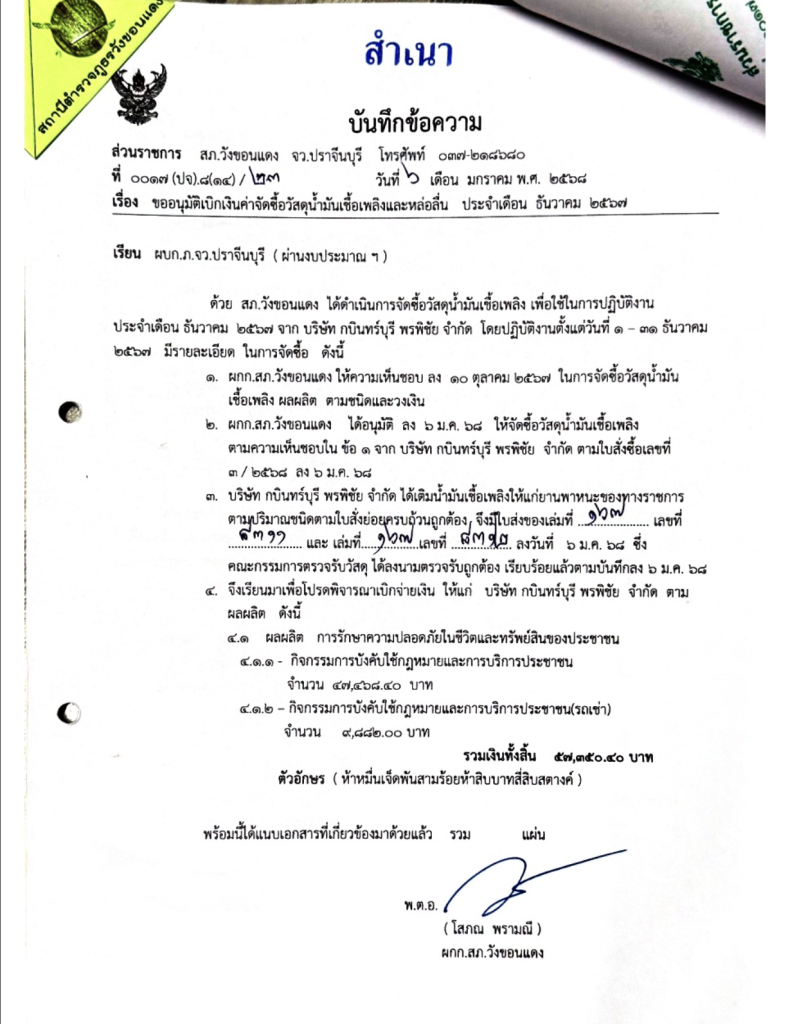 สถานีตำรวจภูธรวังขอนแดง
ส่วนราชการ
สำเนา
บันทึกข้อความ
ส่วนราชการ สภ.วังขอนแดง จว.ปราจีนบุรี โทรศัพท์ ๐๓๗-๒๑๘๖๘๐
ที่ ๐๐๑๗ (ปจ).๘(๑๔) / ๒๓ วันที่ ๖ เดือน มกราคม พ.ศ. ๒๕๖๘
เรื่อง ขออนุมัติเบิกเงินค่าจัดซื้อวัสดุน้ำมันเชื้อเพลิงและหล่อลื่น ประจำเดือน ธันวาคม ๒๕๖๗
เรียน ผบก.ภ.จว.ปราจีนบุรี ( ผ่านงบประมาณ ฯ )
ด้วย สภ.วังขอนแดง ได้ดำเนินการจัดซื้อวัสดุน้ำมันเชื้อเพลิง เพื่อใช้ในการปฏิบัติงาน
ประจำเดือน ธันวาคม ๒๕๖๗ จาก บริษัท กบินทร์บุรี พรพิชัย จำกัด โดยปฏิบัติงานตั้งแต่วันที่ ๑ – ๓๑ ธันวาคม
๒๕๖๗ มีรายละเอียด ในการจัดซื้อ ดังนี้
๑. ผกก.สภ.วังขอนแดง ให้ความเห็นชอบ ลง ๑๐ ตุลาคม ๒๕๖๗ ในการจัดซื้อวัสดุน้ำมัน
เชื้อเพลิง ผลผลิต ตามชนิดและวงเงิน
๒. ผกก.สภ.วังขอนแดง ได้อนุมัติ ลง ๖ ม.ค. ๖๘ ให้จัดซื้อวัสดุน้ำมันเชื้อเพลิง
ตามความเห็นชอบใน ข้อ ๑ จาก บริษัท กบินทร์บุรี พรพิชัย จำกัด ตามใบสั่งซื้อเลขที่
๓ / ๒๕๖๘ ลง ๖ ม.ค. ๖๘
๓. บริษัท กบินทร์บุรี พรพิชัย จำกัด ได้เติมน้ำมันเชื้อเพลิงให้แก่ยานพาหนะของทางราชการ
ตามปริมาณชนิดตามใบสั่งย่อยครบถ้วนถูกต้อง จึงมีใบส่งของเล่มที่ ๑๖๗ เลขที่
๘๓๑๑ และ เล่มที่ ๑๖๗ เลขที่ ลงวันที่ ๖ ม.ค. ๖๘ ซึ่ง
คณะกรรมการตรวจรับวัสดุ ได้ลงนามตรวจรับถูกต้อง เรียบร้อยแล้วตามบันทึกลง ๖ ม.ค. ๖๘
๔. จึงเรียนมาเพื่อโปรดพิจารณาเบิกจ่ายเงิน ให้แก่ บริษัท กบินทร์บุรี พรพิชัย จำกัด ตาม
ผลผลิต ดังนี้
๔.๑ ผลผลิต การรักษาความปลอดภัยในชีวิตและทรัพย์สินของประชาชน
๔.๑.๑ - กิจกรรมการบังคับใช้กฎหมายและการบริการประชาชน
จำนวน ๔๗,๔๖๘.๔๐ บาท
๔.๑.๒ – กิจกรรมการบังคับใช้กฎหมายและการบริการประชาชน(รถเช่า)
จำนวน ๙,๘๘๒.๐๐ บาท
รวมเงินทั้งสิ้น ๕๗,๓๕๐.๔๐ บาท
ตัวอักษร ( ห้าหมื่นเจ็ดพันสามร้อยห้าสิบบาทสี่สิบสตางค์ )
พร้อมนี้ได้แนบเอกสารที่เกี่ยวข้องมาด้วยแล้ว รวม แผ่น
พ.ต.อ.
( โสภณ พรามณี )
ผกก.สภ.วังขอนแดง